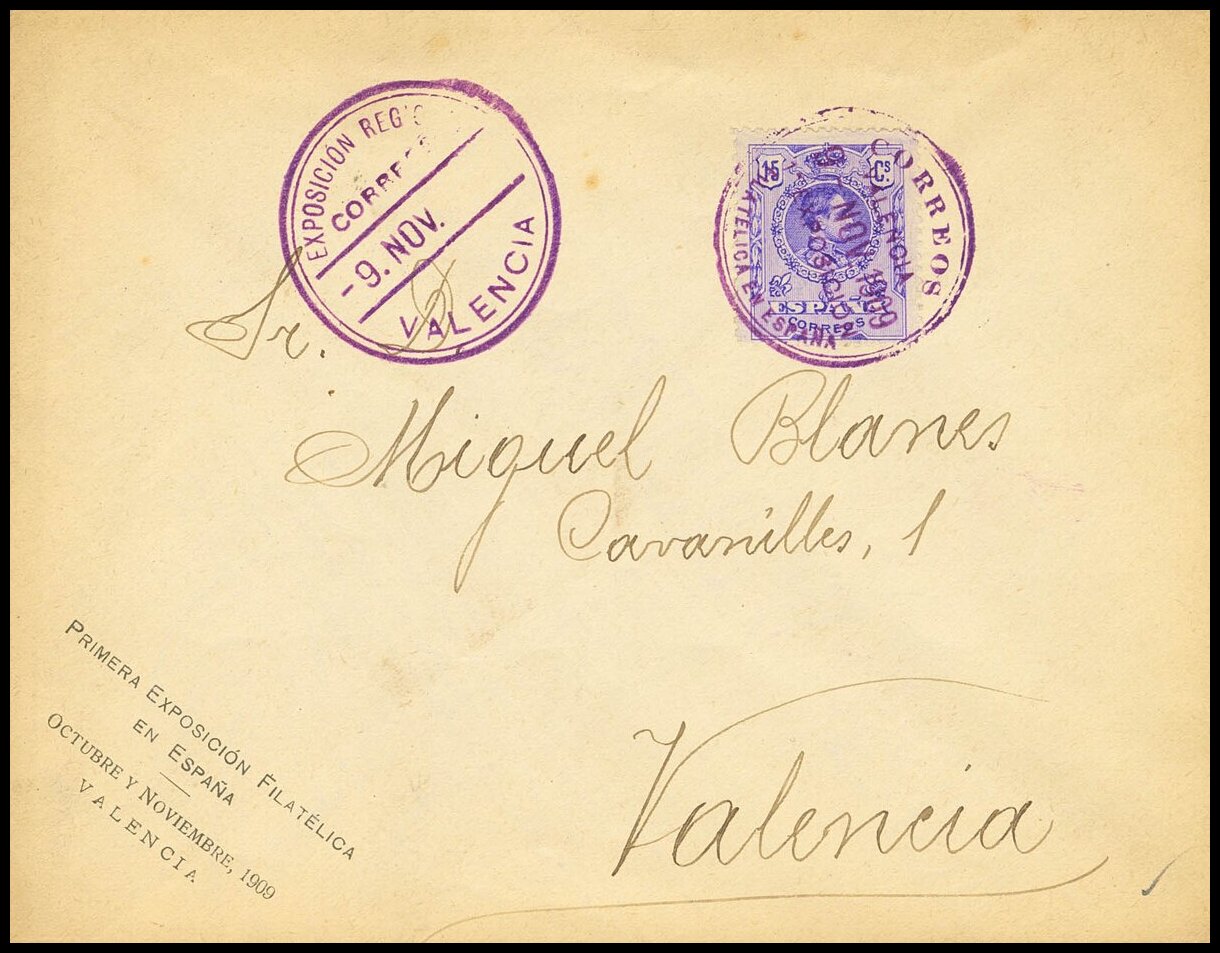 EXPOSICIÓN REG
CORRE
- 9. NOV.
VALENCIA
CORREOS
VALENCIA
9 NOV 1909
1ª EXPOSICION
FILATELICA EN ESPAÑA
15 Cs.
ESPAÑA
CORREOS
Sr. D.
Miguel Blanes
Cavanilles, 1
Valencia
PRIMERA EXPOSICIÓN FILATÉLICA
EN ESPAÑA
OCTUBRE Y NOVIEMBRE, 1909
VALENCIA